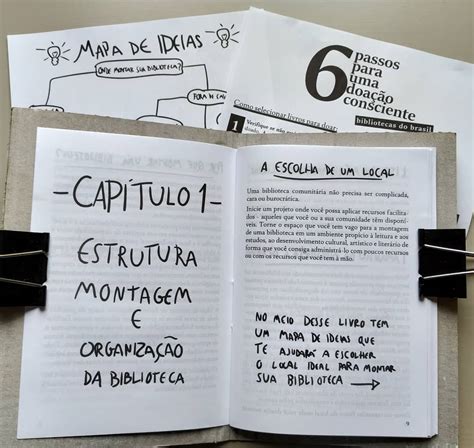 MAPA DE IDEIAS
ONDE MONTAR SUA BIBLIOTECA?
6 passos
para
uma
doação
consciente
bibliotecas do brasil
Como selecionar livros para doar
1 Verifique se não
-CAPÍTULO 1-
ESTRUTURA
MONTAGEM
E
ORGANIZAÇÃO
DA BIBLIOTECA
A ESCOLHA DE UM LOCAL
Uma biblioteca comunitária não precisa ser complicada,
cara ou burocrática.
Inicie um projeto onde você possa aplicar recursos facilita-
dos - aqueles que você ou a sua comunidade têm disponí-
veis. Torne o espaço que você tem vago para a montagem
de uma biblioteca em um ambiente propício à leitura e aos
estudos, ao desenvolvimento cultural, artístico e literário de
forma que você consiga administrá-lo com poucos recursos
ou com os recursos que você tem à mão.
NO MEIO DESSE LIVRO TEM
UM MAPA DE IDEIAS QUE
TE AJUDARÁ A ESCOLHER
O LOCAL IDEAL PARA MONTAR
SUA BIBLIOTECA →
9